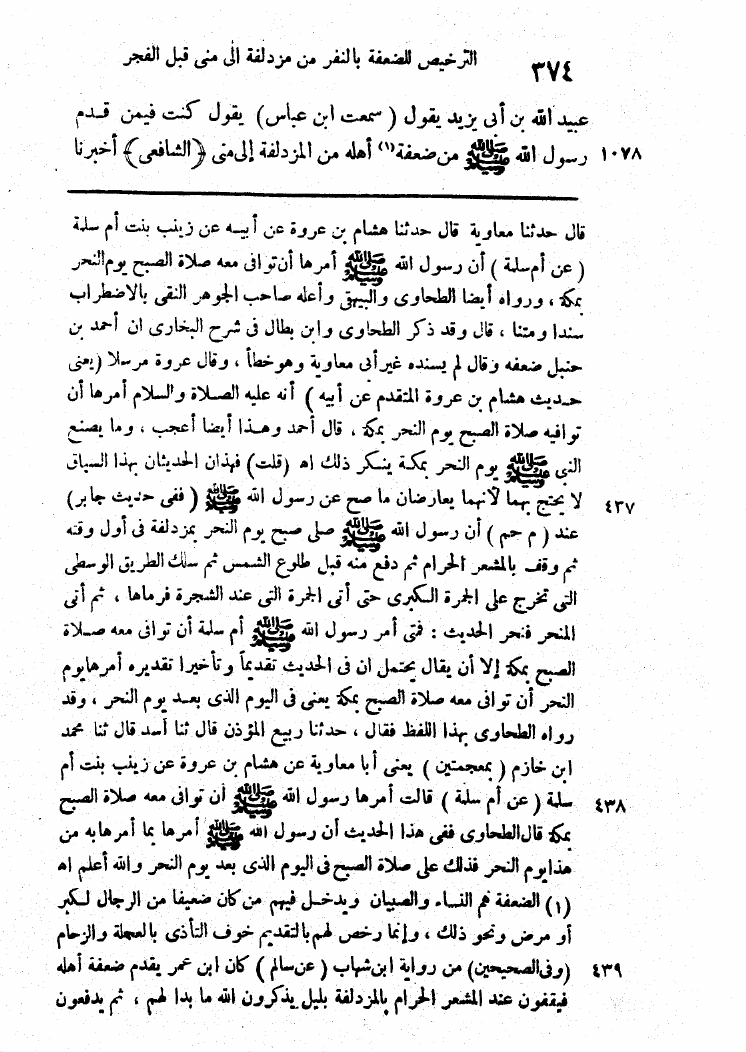 ٣٧٤ الترخيص للضعفة بالنفر من مزدلفة الى منى قبل الفجر
عبيد الله بن أبى يزيد يقول ( سمعت ابن عباس) يقول كنت فيمن قدم
١٠٧٨ رسول الله ﷺ من ضعفة(١) أهله من المزدلفة إلى منى ﴿الشافعى﴾ أخبرنا
قال حدثنا معاوية قال حدثنا هشام بن عروة عن أبيه عن زينب بنت أم سلمة
( عن أم سلمة ) أن رسول الله ﷺ أمرها أن توافى معه صلاة الصبح يوم النحر
بمكة ، ورواه أيضا الطحاوى والبيهقى وأعله صاحب الجوهر النقى بالاضطراب
سندا ومتنا ، قال وقد ذكر الطحاوى وابن بطال فى شرح البخارى ان أحمد بن
حنبل ضعفه وقال لم يسنده غير أبى معاوية وهو خطأ ، وقال عروة مرسلا (يعنى
حديث هشام بن عروة المتقدم عن أبيه ) أنه عليه الصلاة والسلام أمرها أن
توافيه صلاة الصبح يوم النحر بمكة ، قال أحمد وهذا أيضا أعجب ، وما يصنع
النبى ﷺ يوم النحر بمكة ينسكر ذلك اه (قلت) فهذان الحديثان بهذا السياق
٤٣٧ لا يحتج بهما لأنهما يعارضان ما صح عن رسول الله ﷺ ( ففى حديث جابر)
عند ( م حم ) أن رسول الله ﷺ صلى صبح يوم النحر بمزدلفة فى أول وقته
ثم وقف بالمشعر الحرام ثم دفع منه قبل طلوع الشمس ثم سلك الطريق الوسطى
التى تخرج على الجمرة الكبرى حتى أتى الجمرة التى عند الشجرة فرماها ، ثم أتى
المنحر فنحر الحديث : فمتى أمر رسول الله ﷺ أم سلمة أن توافى معه صلاة
الصبح بمكة إلا أن يقال يحتمل ان فى الحديث تقديماً وتأخيرا تقديره أمرها يوم
النحر أن توافى معه صلاة الصبح بمكة يعنى فى اليوم الذى بعد يوم النحر ، وقد
رواه الطحاوى بهذا اللفظ فقال ، حدثنا ربيع المؤذن قال ثنا أسد قال ثنا محمد
ابن خازم ( بمعجمتين ) يعنى أبا معاوية عن هشام بن عروة عن زينب بنت أم
٤٣٨ سلمة ( عن أم سلمة ) قالت أمرها رسول الله ﷺ أن توافى معه صلاة الصبح
بمكة قال الطحاوى ففى هذا الحديث أن رسول الله ﷺ أمرها بما أمرها به من
هذا يوم النحر فذلك على صلاة الصبح فى اليوم الذى بعد يوم النحر والله أعلم اه
(١) الضعفة هم النساء والصبيان ويدخل فيهم من كان ضعيفا من الرجال لكبر
أو مرض ونحو ذلك ، وإنما رخص لهم بالتقديم خوف التأذى بالعجلة والزحام
٤٣٩ (وفى الصحيحين) من رواية ابن شهاب ( عن سالم ) كان ابن عمر يقدم ضعفة أهله
فيقفون عند المشعر الحرام بالمزدلفة بليل يذكرون الله ما بدا لهم ، ثم يدفعون